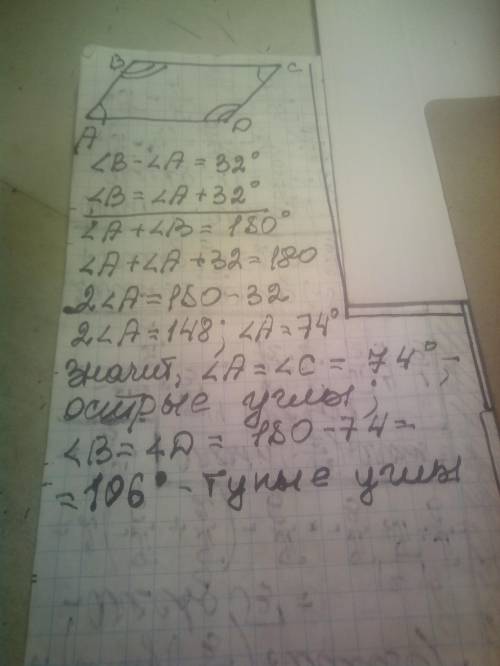 B C
A D
∠B - ∠A = 32°
∠B = ∠A + 32°
∠A + ∠B = 180°
∠A + ∠A + 32 = 180
2∠A = 180 - 32
2∠A = 148; ∠A = 74°
значит, ∠A = ∠C = 74° -
острые углы;
∠B = ∠D = 180 - 74 =
= 106° - тупые углы